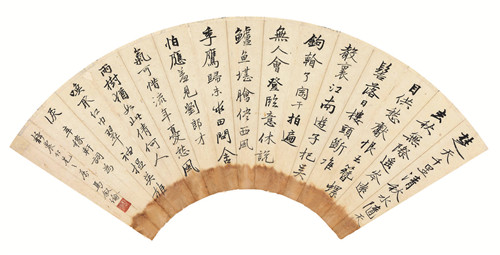 楚天千里清秋水隨天
去秋無際遥岑遠
目供愁獻恨玉簪螺
髻落日樓頭斷鴻
聲裏江南遊子把吴
鉤看了闌干拍遍
無人會登臨意休說
鱸魚堪膾儘西風
季鷹歸未求田問舍
怕應羞見劉郎才
氣可惜流年憂愁風
雨樹猶如此倩何人
喚取紅巾翠袖搵英雄
淚 辛稼軒詞為
馬叙倫